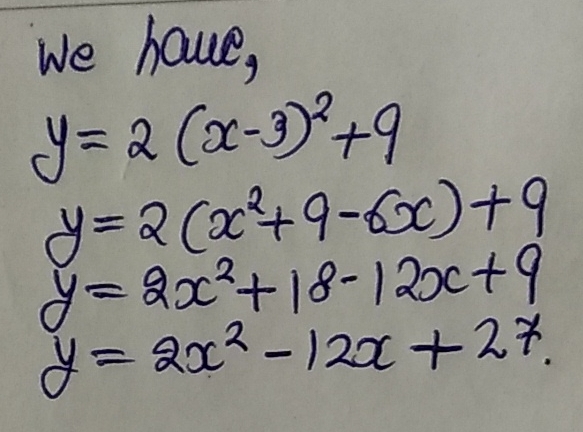 We have,
y = 2 (x-3)² + 9
y = 2 (x² + 9 - 6x) + 9
y = 2x² + 18 - 12x + 9
y = 2x² - 12x + 27.